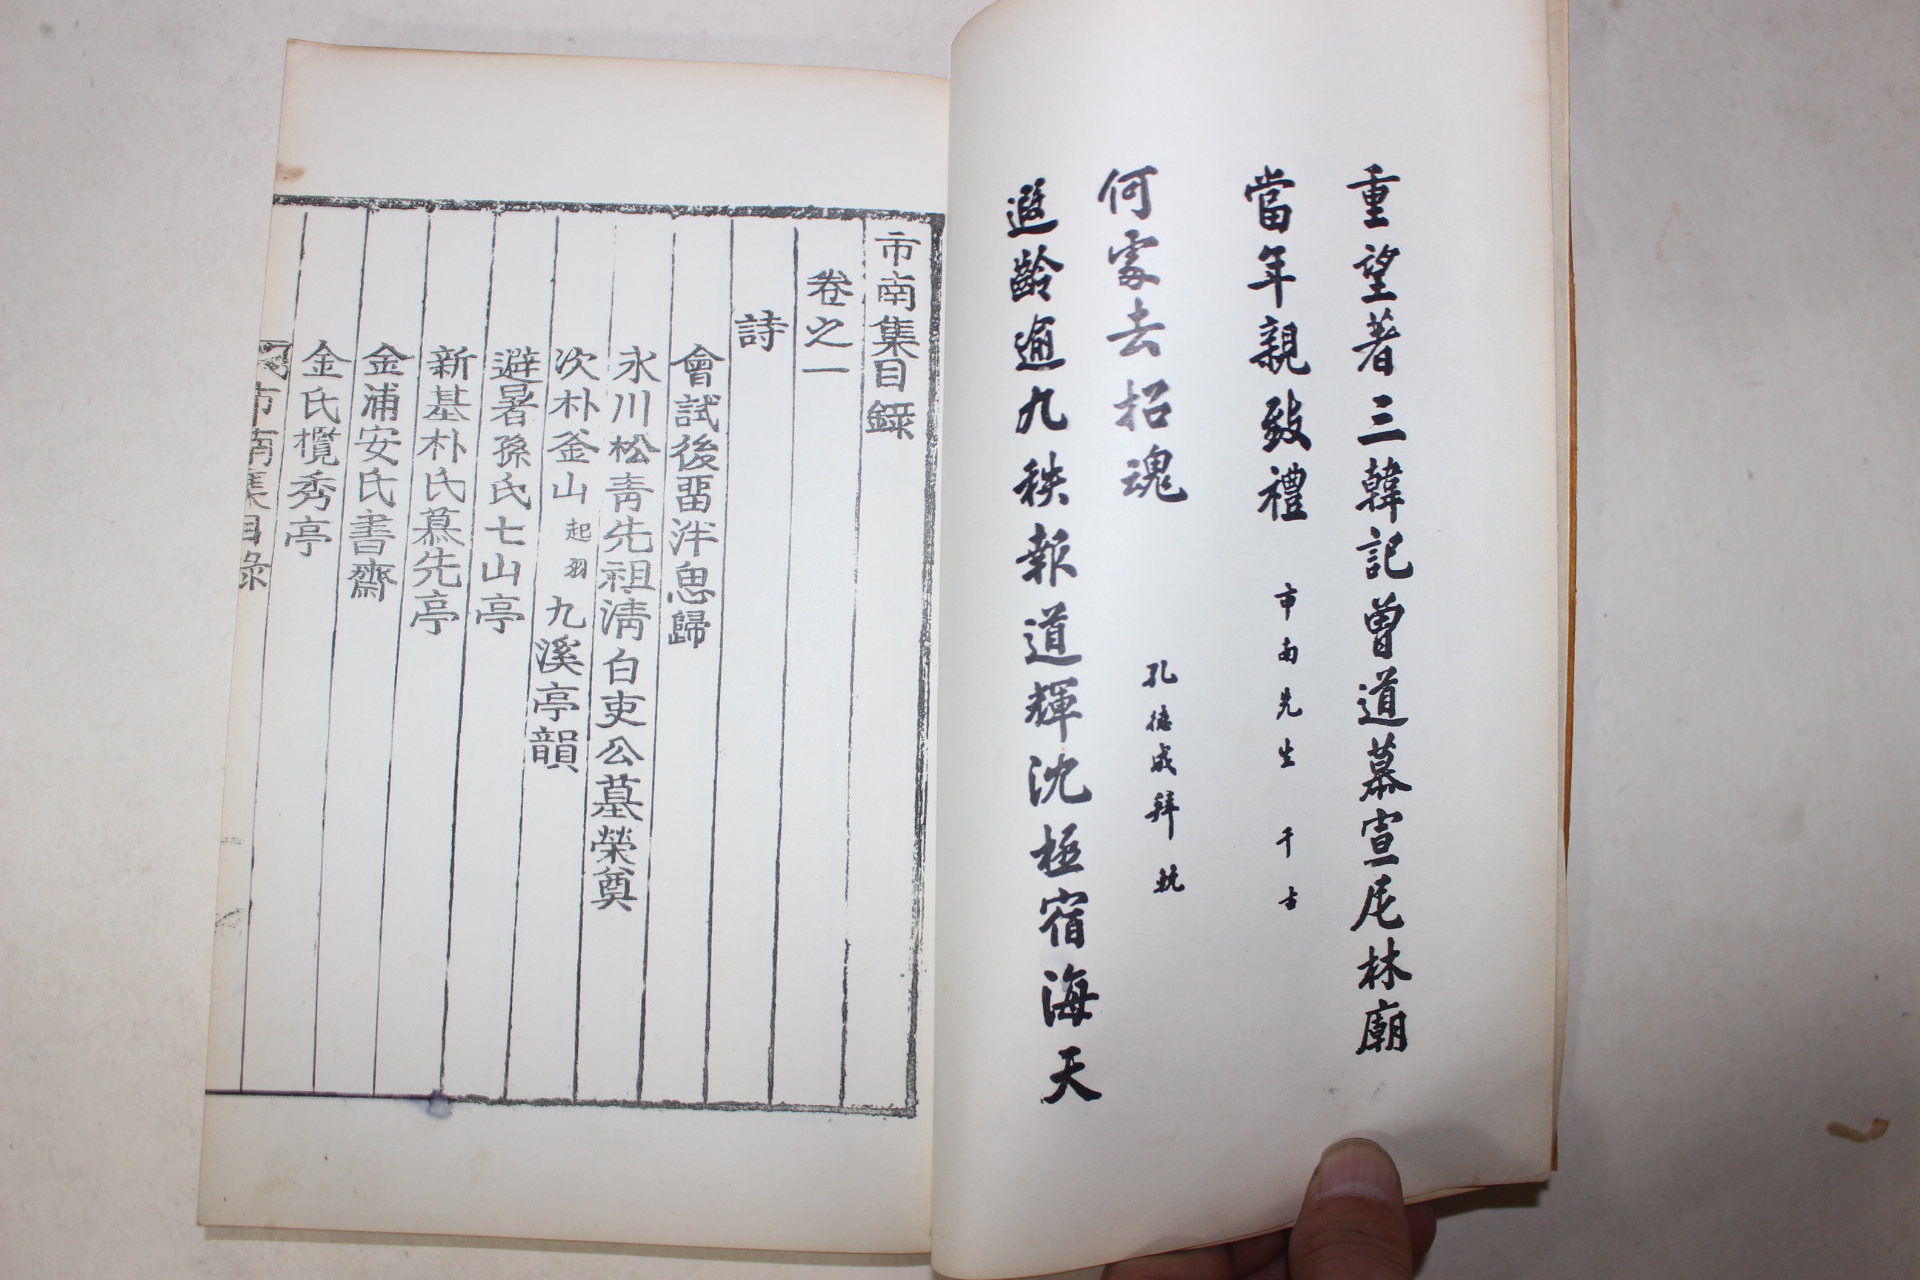 重望著三韓記曾道慕宣尼林廟
當年親致禮
市南先生千古
遐齡逾九秩報道輝沈極宿海天
何處去招魂
孔德成拜輓
市南集目錄
卷之一
詩
會試後留泮思歸
永川松青先祖淸白吏公墓榮奠
次朴釜山起羽九溪亭韻
避暑孫氏七山亭
新基朴氏慕先亭
金浦安氏書齋
金氏欖秀亭
市南集目錄